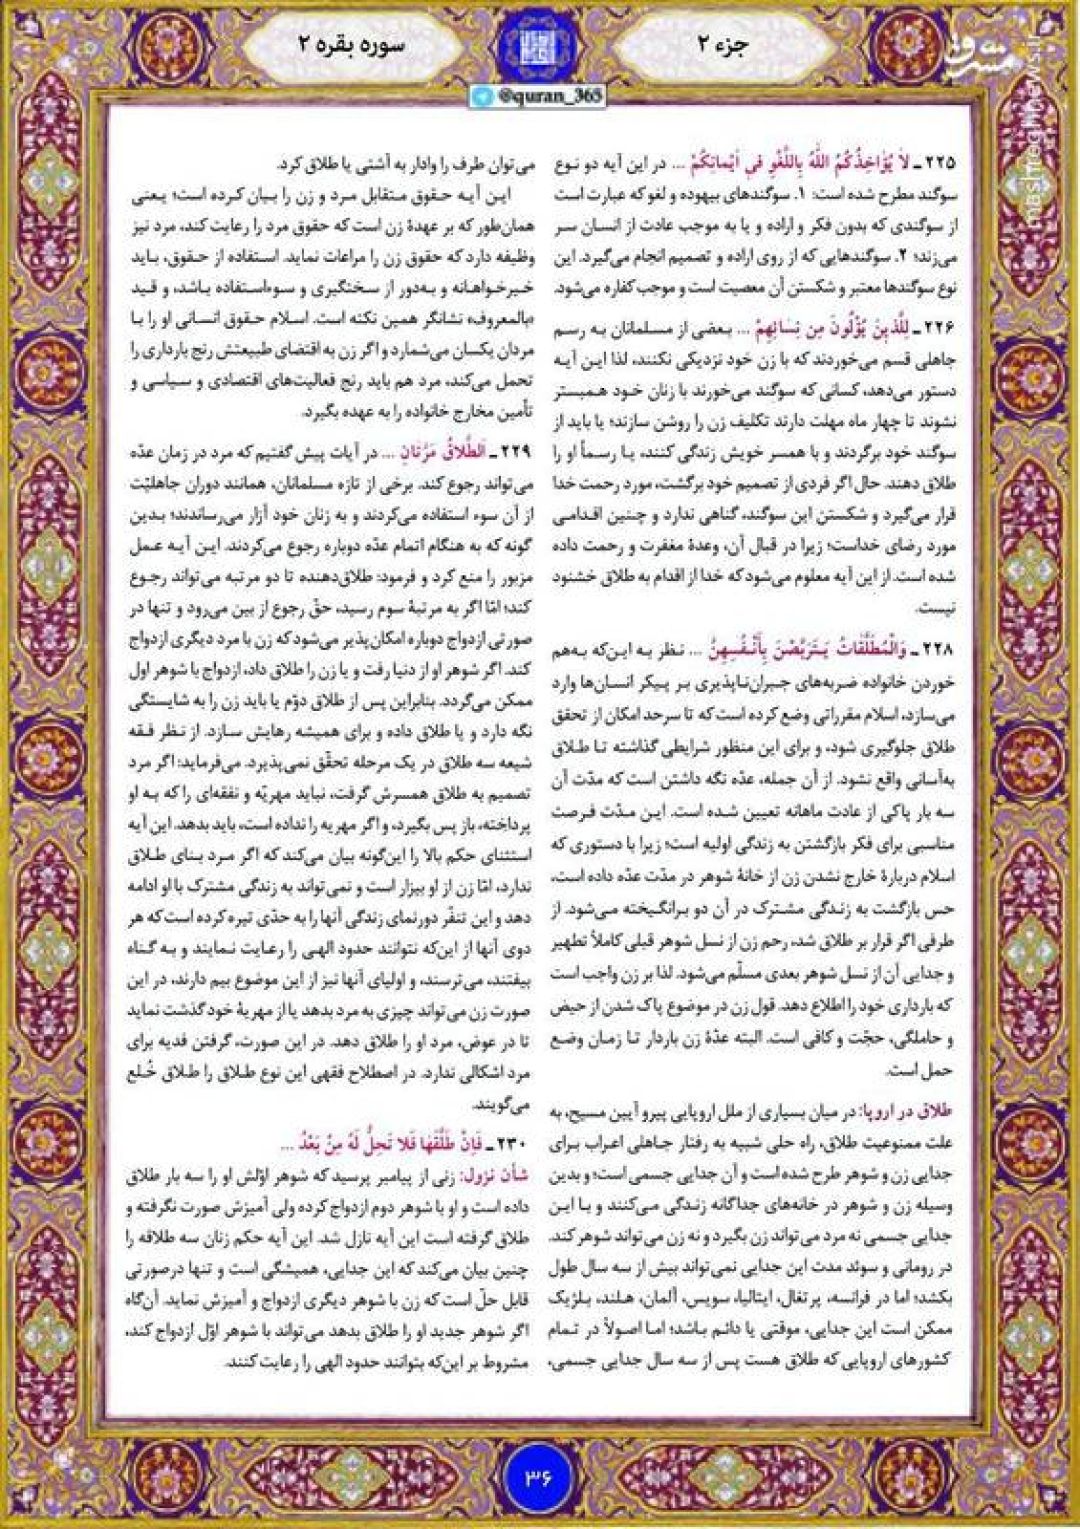 جزء ۲
سوره بقره ۲
@quran_365
mashreghnews.ir
۲۲۵ ـ لاٰ يُؤَاخِذُكُمُ اللهُ بِاللَّغْوِ في اَيْمانِكُمْ ... در این آیه دو نوع
سوگند مطرح شده است: ۱. سوگندهای بیهوده و لغو که عبارت است
از سوگندی که بدون فکر و اراده و یا به موجب عادت از انسان سر
می‌زند؛ ۲. سوگندهایی که از روی اراده و تصمیم انجام می‌گیرد. این
نوع سوگندها معتبر و شکستن آن معصیت است و موجب کفاره می‌شود.
۲۲۶ ـ لِلَّذينَ يُؤْلُونَ مِن نِسَائِهِمْ ... بعضی از مسلمانان به رسم
جاهلی قسم می‌خوردند که با زن خود نزدیکی نکنند، لذا این آیه
دستور می‌دهد، کسانی که سوگند می‌خورند با زنان خود همبستر
نشوند تا چهار ماه مهلت دارند تکلیف زن را روشن سازند؛ یا باید از
سوگند خود برگردند و با همسر خویش زندگی کنند، یا رسماً او را
طلاق دهند. حال اگر فردی از تصمیم خود برگشت، مورد رحمت خدا
قرار می‌گیرد و شکستن این سوگند، گناهی ندارد و چنین اقدامی
مورد رضای خداست؛ زیرا در قبال آن، وعدهٔ مغفرت و رحمت داده
شده است. از این آیه معلوم می‌شود که خدا از اقدام به طلاق خشنود
نیست.
۲۲۸ ـ وَالْمُطَلَّقَاتُ يَتَرَبَّصْنَ بِأَنْفُسِهِنَّ ... نظر به این‌که به‌هم
خوردن خانواده ضربه‌های جبران‌ناپذیری بر پیکر انسان‌ها وارد
می‌سازد، اسلام مقرراتی وضع کرده است که تا سرحد امکان از تحقق
طلاق جلوگیری شود، و برای این منظور شرایطی گذاشته تا طلاق
به‌آسانی واقع نشود. از آن جمله، عدّه نگه داشتن است که مدّت آن
سه بار پاکی از عادت ماهانه تعیین شده است. این مدّت فرصت
مناسبی برای فکر بازگشتن به زندگی اولیه است؛ زیرا با دستوری که
اسلام دربارهٔ خارج نشدن زن از خانهٔ شوهر در مدّت عدّه داده است،
حس بازگشت به زندگی مشترک در آن دو برانگیخته می‌شود. از
طرفی اگر قرار بر طلاق شد، رحم زن از نسل شوهر قبلی کاملاً تطهیر
و جدایی آن از نسل شوهر بعدی مسلّم می‌شود. لذا بر زن واجب است
که بارداری خود را اطلاع دهد. قول زن در موضوع پاک شدن از حیض
و حاملگی، حجّت و کافی است. البته عدّهٔ زن باردار تا زمان وضع
حمل است.
طلاق در اروپا: در میان بسیاری از ملل اروپایی پیرو آیین مسیح، به
علت ممنوعیت طلاق، راه حلی شبیه به رفتار جاهلی اعراب برای
جدایی زن و شوهر طرح شده است و آن جدایی جسمی است؛ و بدین
وسیله زن و شوهر در خانه‌های جداگانه زندگی می‌کنند و با این
جدایی جسمی نه مرد می‌تواند زن بگیرد و نه زن می‌تواند شوهر کند.
در رومانی و سوئد مدت این جدایی نمی‌تواند بیش از سه سال طول
بکشد؛ اما در فرانسه، پرتغال، ایتالیا، سویس، آلمان، هلند، بلژیک
ممکن است این جدایی، موقتی یا دائم باشد؛ اما اصولاً در تمام
کشورهای اروپایی که طلاق هست پس از سه سال جدایی جسمی،
می‌توان طرف را وادار به آشتی یا طلاق کرد.
این آیه حقوق متقابل مرد و زن را بیان کرده است؛ یعنی
همان‌طور که بر عهدهٔ زن است که حقوق مرد را رعایت کند، مرد نیز
وظیفه دارد که حقوق زن را مراعات نماید. استفاده از حقوق، باید
خیرخواهانه و به‌دور از سختگیری و سوءاستفاده باشد، و قید
«بالمعروف» نشانگر همین نکته است. اسلام حقوق انسانی او را با
مردان یکسان می‌شمارد و اگر زن به اقتضای طبیعتش رنج بارداری را
تحمل می‌کند، مرد هم باید رنج فعالیت‌های اقتصادی و سیاسی و
تأمین مخارج خانواده را به عهده بگیرد.
۲۲۹ ـ اَلطَّلاقُ مَرَّتَانِ ... در آیات پیش گفتیم که مرد در زمان عدّه
می‌تواند رجوع کند. برخی از تازه مسلمانان، همانند دوران جاهلیّت
از آن سوء استفاده می‌کردند و به زنان خود آزار می‌رساندند؛ بدین
گونه که به هنگام اتمام عدّه دوباره رجوع می‌کردند. این آیه عمل
مزبور را منع کرد و فرمود: طلاق‌دهنده تا دو مرتبه می‌تواند رجوع
کند؛ امّا اگر به مرتبهٔ سوم رسید، حقّ رجوع از بین می‌رود و تنها در
صورتی ازدواج دوباره امکان‌پذیر می‌شود که زن با مرد دیگری ازدواج
کند. اگر شوهر او از دنیا رفت و یا زن را طلاق داد، ازدواج با شوهر اول
ممکن می‌گردد. بنابراین پس از طلاق دوّم یا باید زن را به شایستگی
نگه دارد و یا طلاق داده و برای همیشه رهایش سازد. از نظر فقه
شیعه سه طلاق در یک مرحله تحقّق نمی‌پذیرد. می‌فرماید: اگر مرد
تصمیم به طلاق همسرش گرفت، نباید مهریّه و نفقه‌ای را که به او
پرداخته، باز پس بگیرد، و اگر مهریه را نداده است، باید بدهد. این آیه
استثنای حکم بالا را این‌گونه بیان می‌کند که اگر مرد بنای طلاق
ندارد، امّا زن از او بیزار است و نمی‌تواند به زندگی مشترک با او ادامه
دهد و این تنفّر دورنمای زندگی آنها را به حدّی تیره کرده است که هر
دوی آنها از این‌که نتوانند حدود الهی را رعایت نمایند و به گناه
بیفتند، می‌ترسند، و اولیای آنها نیز از این موضوع بیم دارند، در این
صورت زن می‌تواند چیزی به مرد بدهد یا از مهریهٔ خود گذشت نماید
تا در عوض، مرد او را طلاق دهد. در این صورت، گرفتن فدیه برای
مرد اشکالی ندارد. در اصطلاح فقهی این نوع طلاق را طلاق خُلع
می‌گویند.
۲۳۰ ـ فَإِنْ طَلَّقَهَا فَلا تَحِلُّ لَهُ مِنْ بَعْدُ ...
شأن نزول: زنی از پیامبر پرسید که شوهر اوّلش او را سه بار طلاق
داده است و او با شوهر دوم ازدواج کرده ولی آمیزش صورت نگرفته و
طلاق گرفته است این آیه نازل شد. این آیه حکم زنان سه طلاقه را
چنین بیان می‌کند که این جدایی، همیشگی است و تنها درصورتی
قابل حلّ است که زن با شوهر دیگری ازدواج و آمیزش نماید. آن‌گاه
اگر شوهر جدید او را طلاق بدهد می‌تواند با شوهر اوّل ازدواج کند،
مشروط بر این‌که بتوانند حدود الهی را رعایت کنند.
۳۶